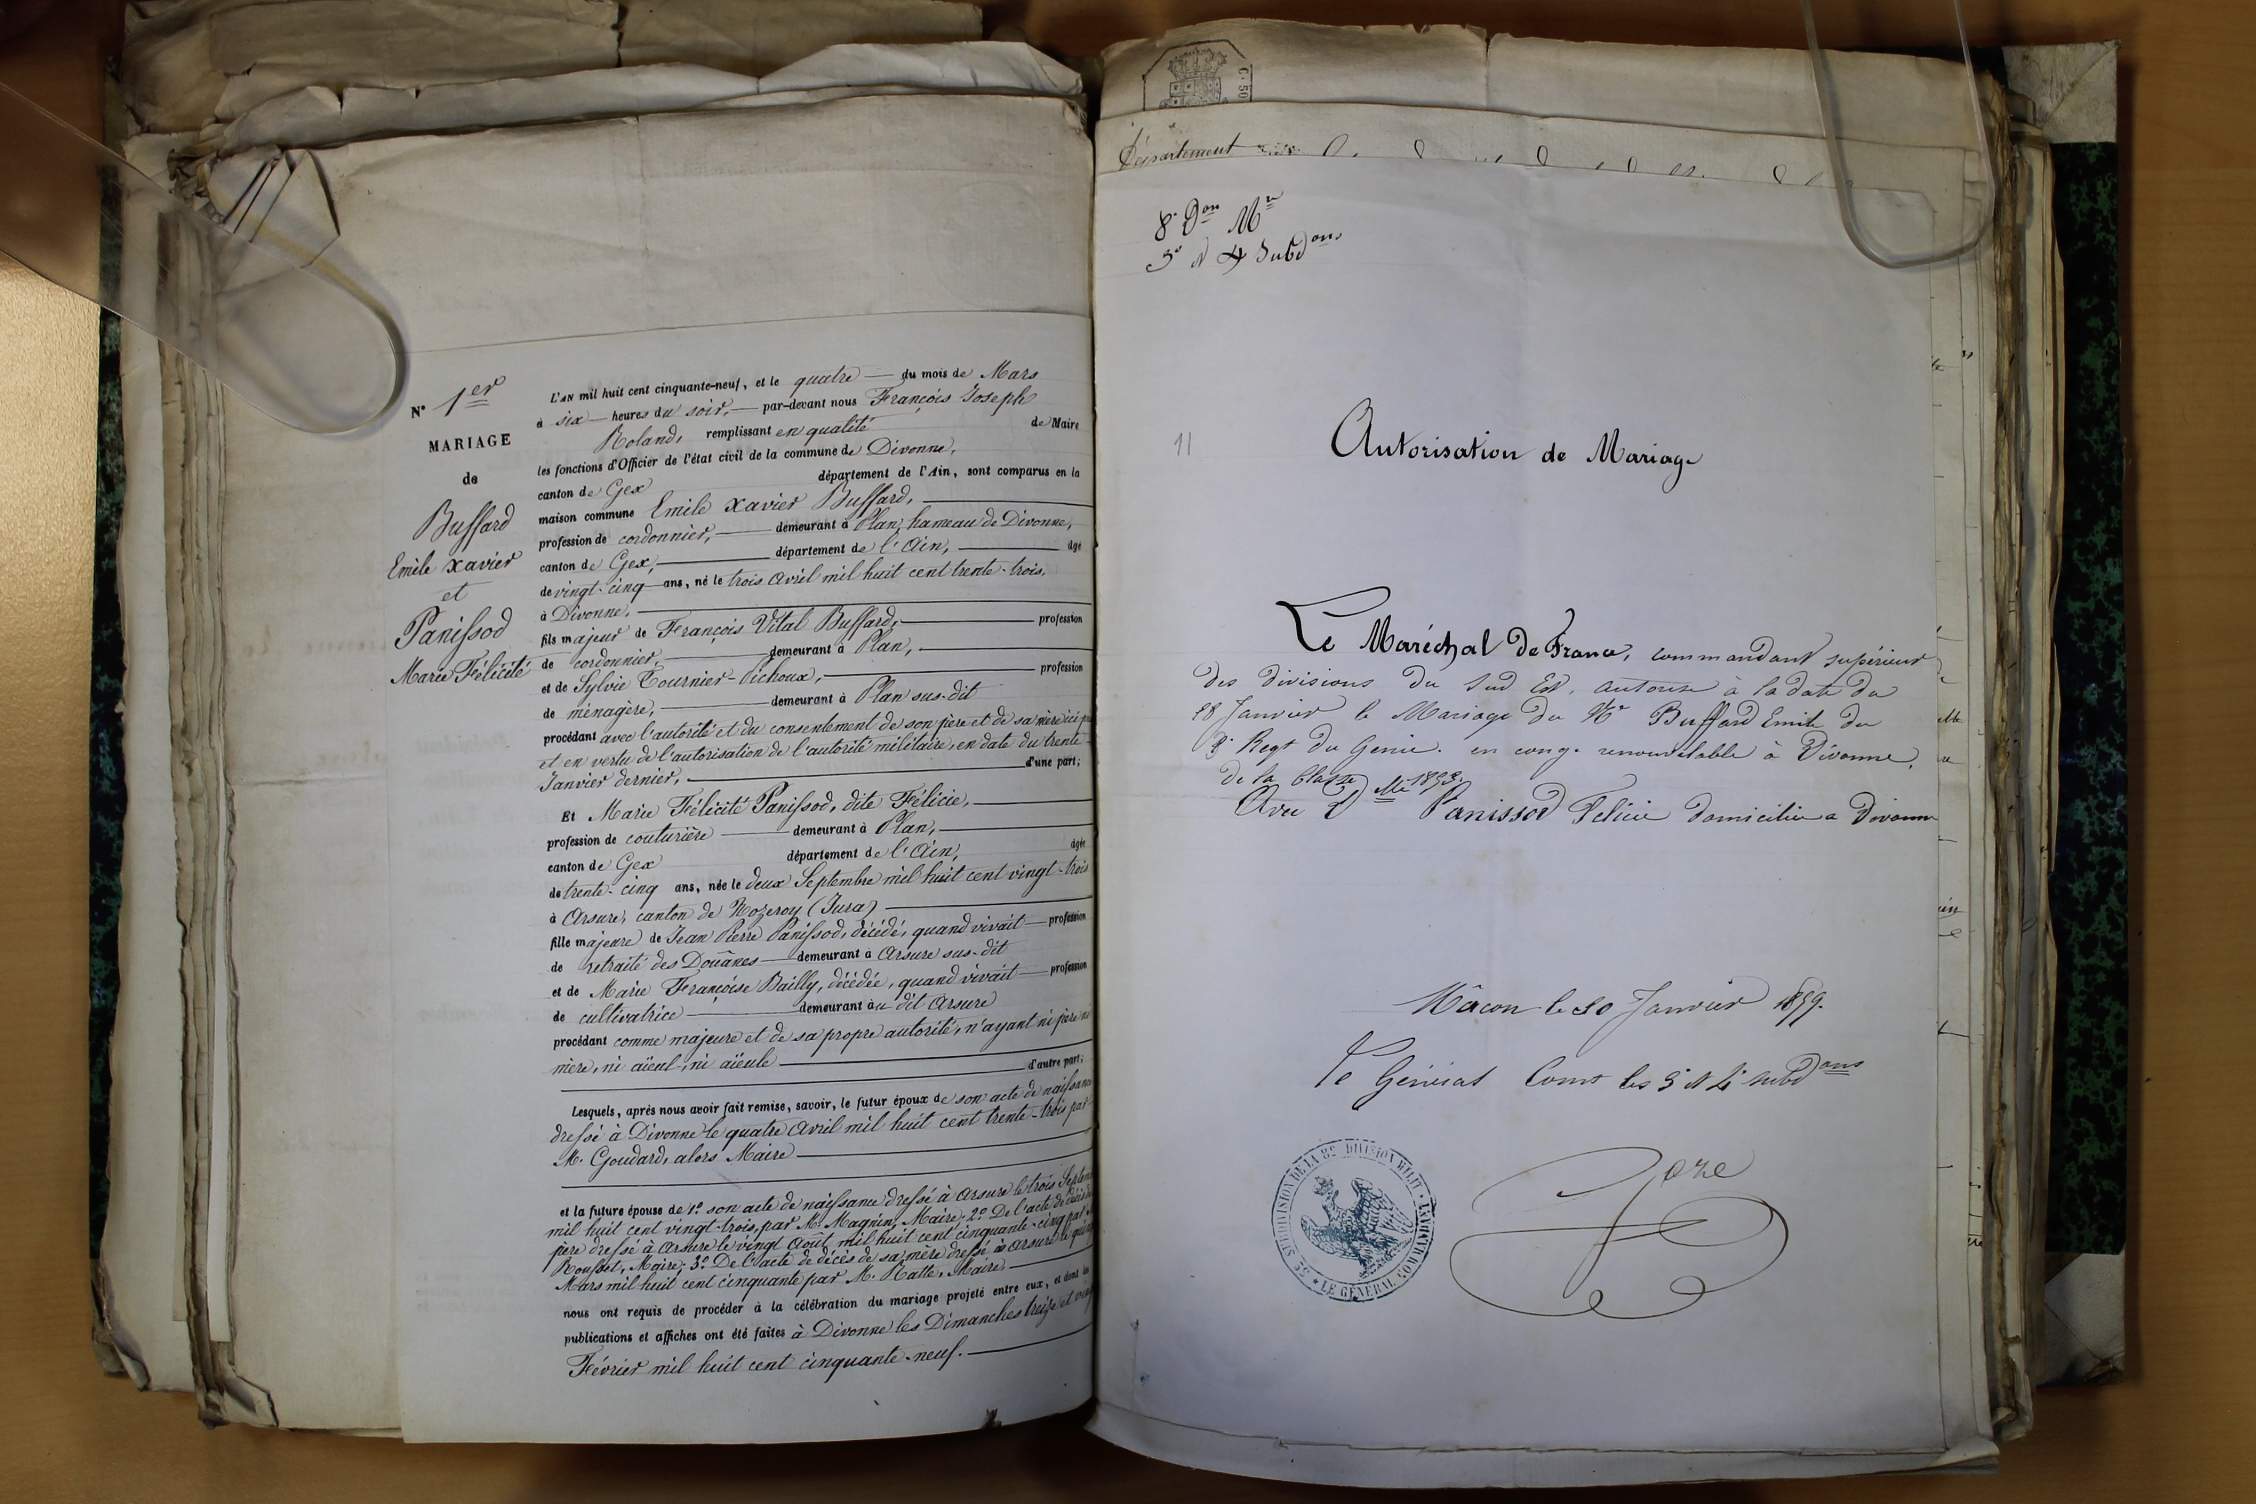 N° 1er
MARIAGE
de
Buffard
Emile Xavier
et
Panissod
Marie Félicité
L'AN mil huit cent cinquante-neuf, et le quatre du mois de Mars
à six heures du soir, par-devant nous François Joseph
Roland, remplissant en qualité de Maire
les fonctions d'Officier de l'état civil de la commune de Divonne,
canton de Gex département de l'Ain, sont comparus en la
maison commune Emile Xavier Buffard,
profession de cordonnier, demeurant à Plan, hameau de Divonne,
canton de Gex, département de l'Ain, âgé
de vingt-cinq ans, né le trois Avril mil huit cent trente-trois,
à Divonne,
fils majeur de François Vital Buffard, profession
de cordonnier, demeurant à Plan,
et de Sylvie Tournier-Pichoux, profession
de ménagère, demeurant à Plan sus-dit
procédant avec l'autorité et du consentement de son père et de sa mère ici
et en vertu de l'autorisation de l'autorité militaire, en date du trente
Janvier dernier, d'une part;
Et Marie Félicité Panissod, dite Félicie,
profession de couturière demeurant à Plan,
canton de Gex département de l'Ain, âgée
de trente-cinq ans, née le deux Septembre mil huit cent vingt-trois
à Arsure, canton de Nozeroy (Jura)
fille majeure de Jean Pierre Panissod, décédé, quand vivait profession
de retraité des Douânes demeurant à Arsure sus-dit
et de Marie Françoise Bailly, décédée, quand vivait profession
de cultivatrice demeurant au dit Arsure
procédant comme majeure et de sa propre autorité, n'ayant ni père ni
mère, ni aïeul, ni aïeule d'autre part;
Lesquels, après nous avoir fait remise, savoir, le futur époux de son acte de naissance
dressé à Divonne le quatre Avril mil huit cent trente-trois par
M. Goudard, alors Maire
et la future épouse de 1° son acte de naissance dressé à Arsure le trois Septem
mil huit cent vingt-trois, par M. Magnin, Maire; 2° De l'acte de décès de
père dressé à Arsure le vingt Août mil huit cent cinquante-cinq par
Rousset, Maire; 3° De l'acte de décès de sa mère dressé à Arsure le
Mars mil huit cent cinquante par M. Ratte, Maire,
nous ont requis de procéder à la célébration du mariage projeté entre eux, et dont les
publications et affiches ont été faites à Divonne les Dimanches treize et
Février mil huit cent cinquante-neuf.
C. 50
Département
8e Don Mre
3e et 4 Subdons
11
Autorisation de Mariage
Le Maréchal de France, commandant supérieur
des divisions du Sud Est, autorise à la date du
28 Janvier le Mariage du Nr Buffard Emile du
Regt du Génie. en congé renouvelable à Divonne,
de la Classe 1853.
Avec Mlle Panissod Félicie domiciliée à Divonne
Mâcon le 30 Janvier 1859.
Le Général Comt les 3e et 4e subdons
SUBDIVISION DE LA 8E DIVISION MILIT. * LE GÉNÉRAL COMMANDANT *